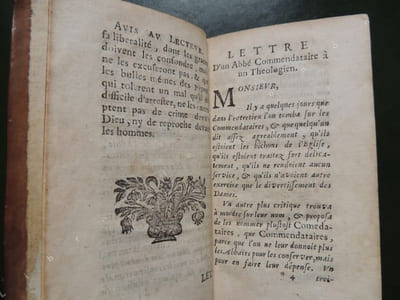 AVIS AV LECTEVR.
sa liberalité, dont les grands
doivent les confondre, mais
ne les excuseront pas, &
les bulles mêmes des papes
qui tolerent un mal qu'il
difficile d'arrester, ne les
ptent pas de crime de
Dieu, ny de reproche devant
les hommes.
LET
LETTRE
D'un Abbé Commendataire à
un Theologien.
MONSIEUR,
Il y a quelques jours que
dans l'entretien l'on tomba sur les
Commendataires, & que quelqu'un
dit assez agreablement, qu'ils
estoient les bichons de l'Eglise,
qu'ils estoient traitez fort delica-
tement, qu'ils ne rendoient aucun
service, & qu'ils n'avoient autre
exercice que le divertissement des
Dames.
Un autre plus critique trouva
à mordre sur leur nom, & proposa
de les nommer plustost Comeda-
taires, que Commendataires,
parce que l'on ne leur donnoit plus
les Abbaies pour les conserver, mais
pour en faire leur dépense. Un
troi-